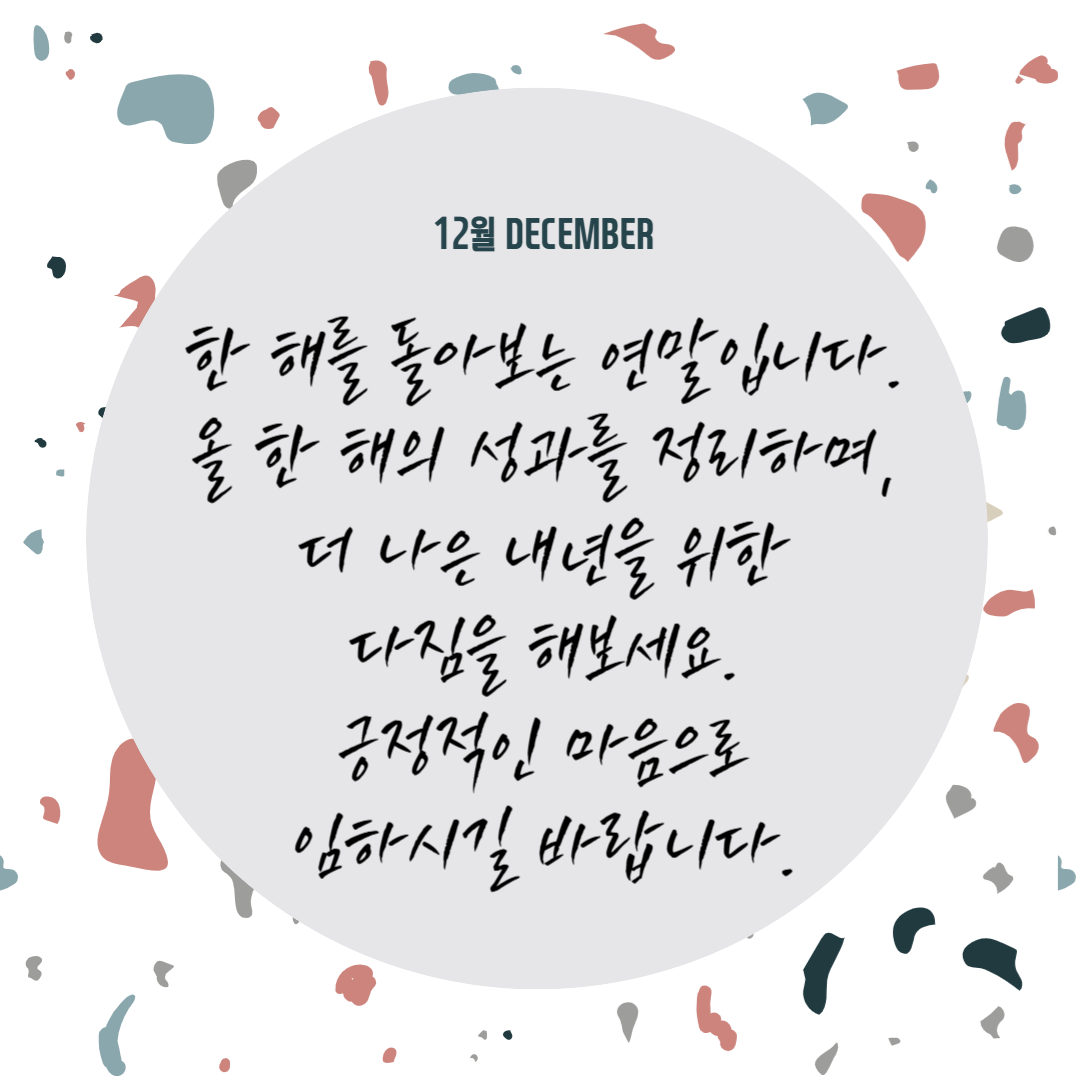 12월 DECEMBER
한 해를 돌아보는 연말입니다.
올 한 해의 성과를 정리하며,
더 나은 내년을 위한
다짐을 해보세요.
긍정적인 마음으로
임하시길 바랍니다.